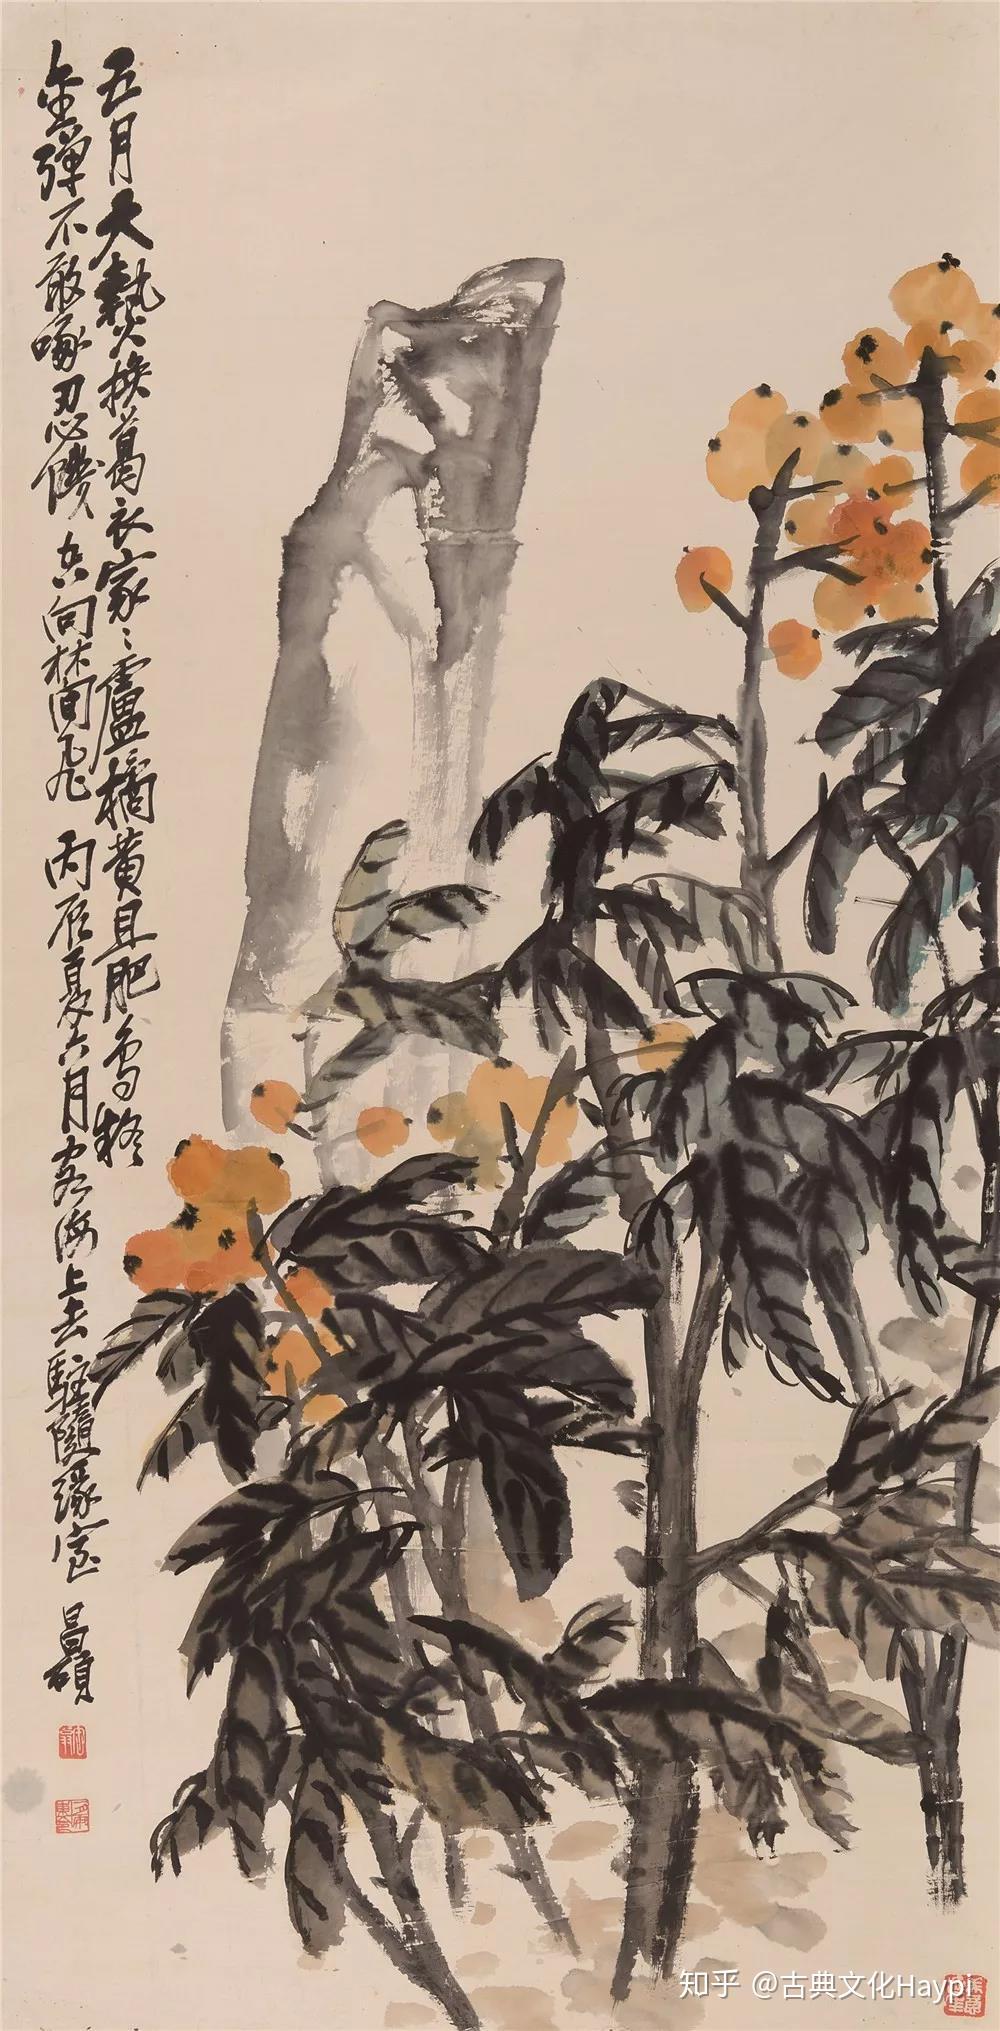 五月天熱換葛衣家〻盧橘黃且肥鳥疑
金彈不敢啄忍饑空向林間飛 丙辰夏六月客海上去駐隨緣室 昌碩
知乎 @古典文化Haypi